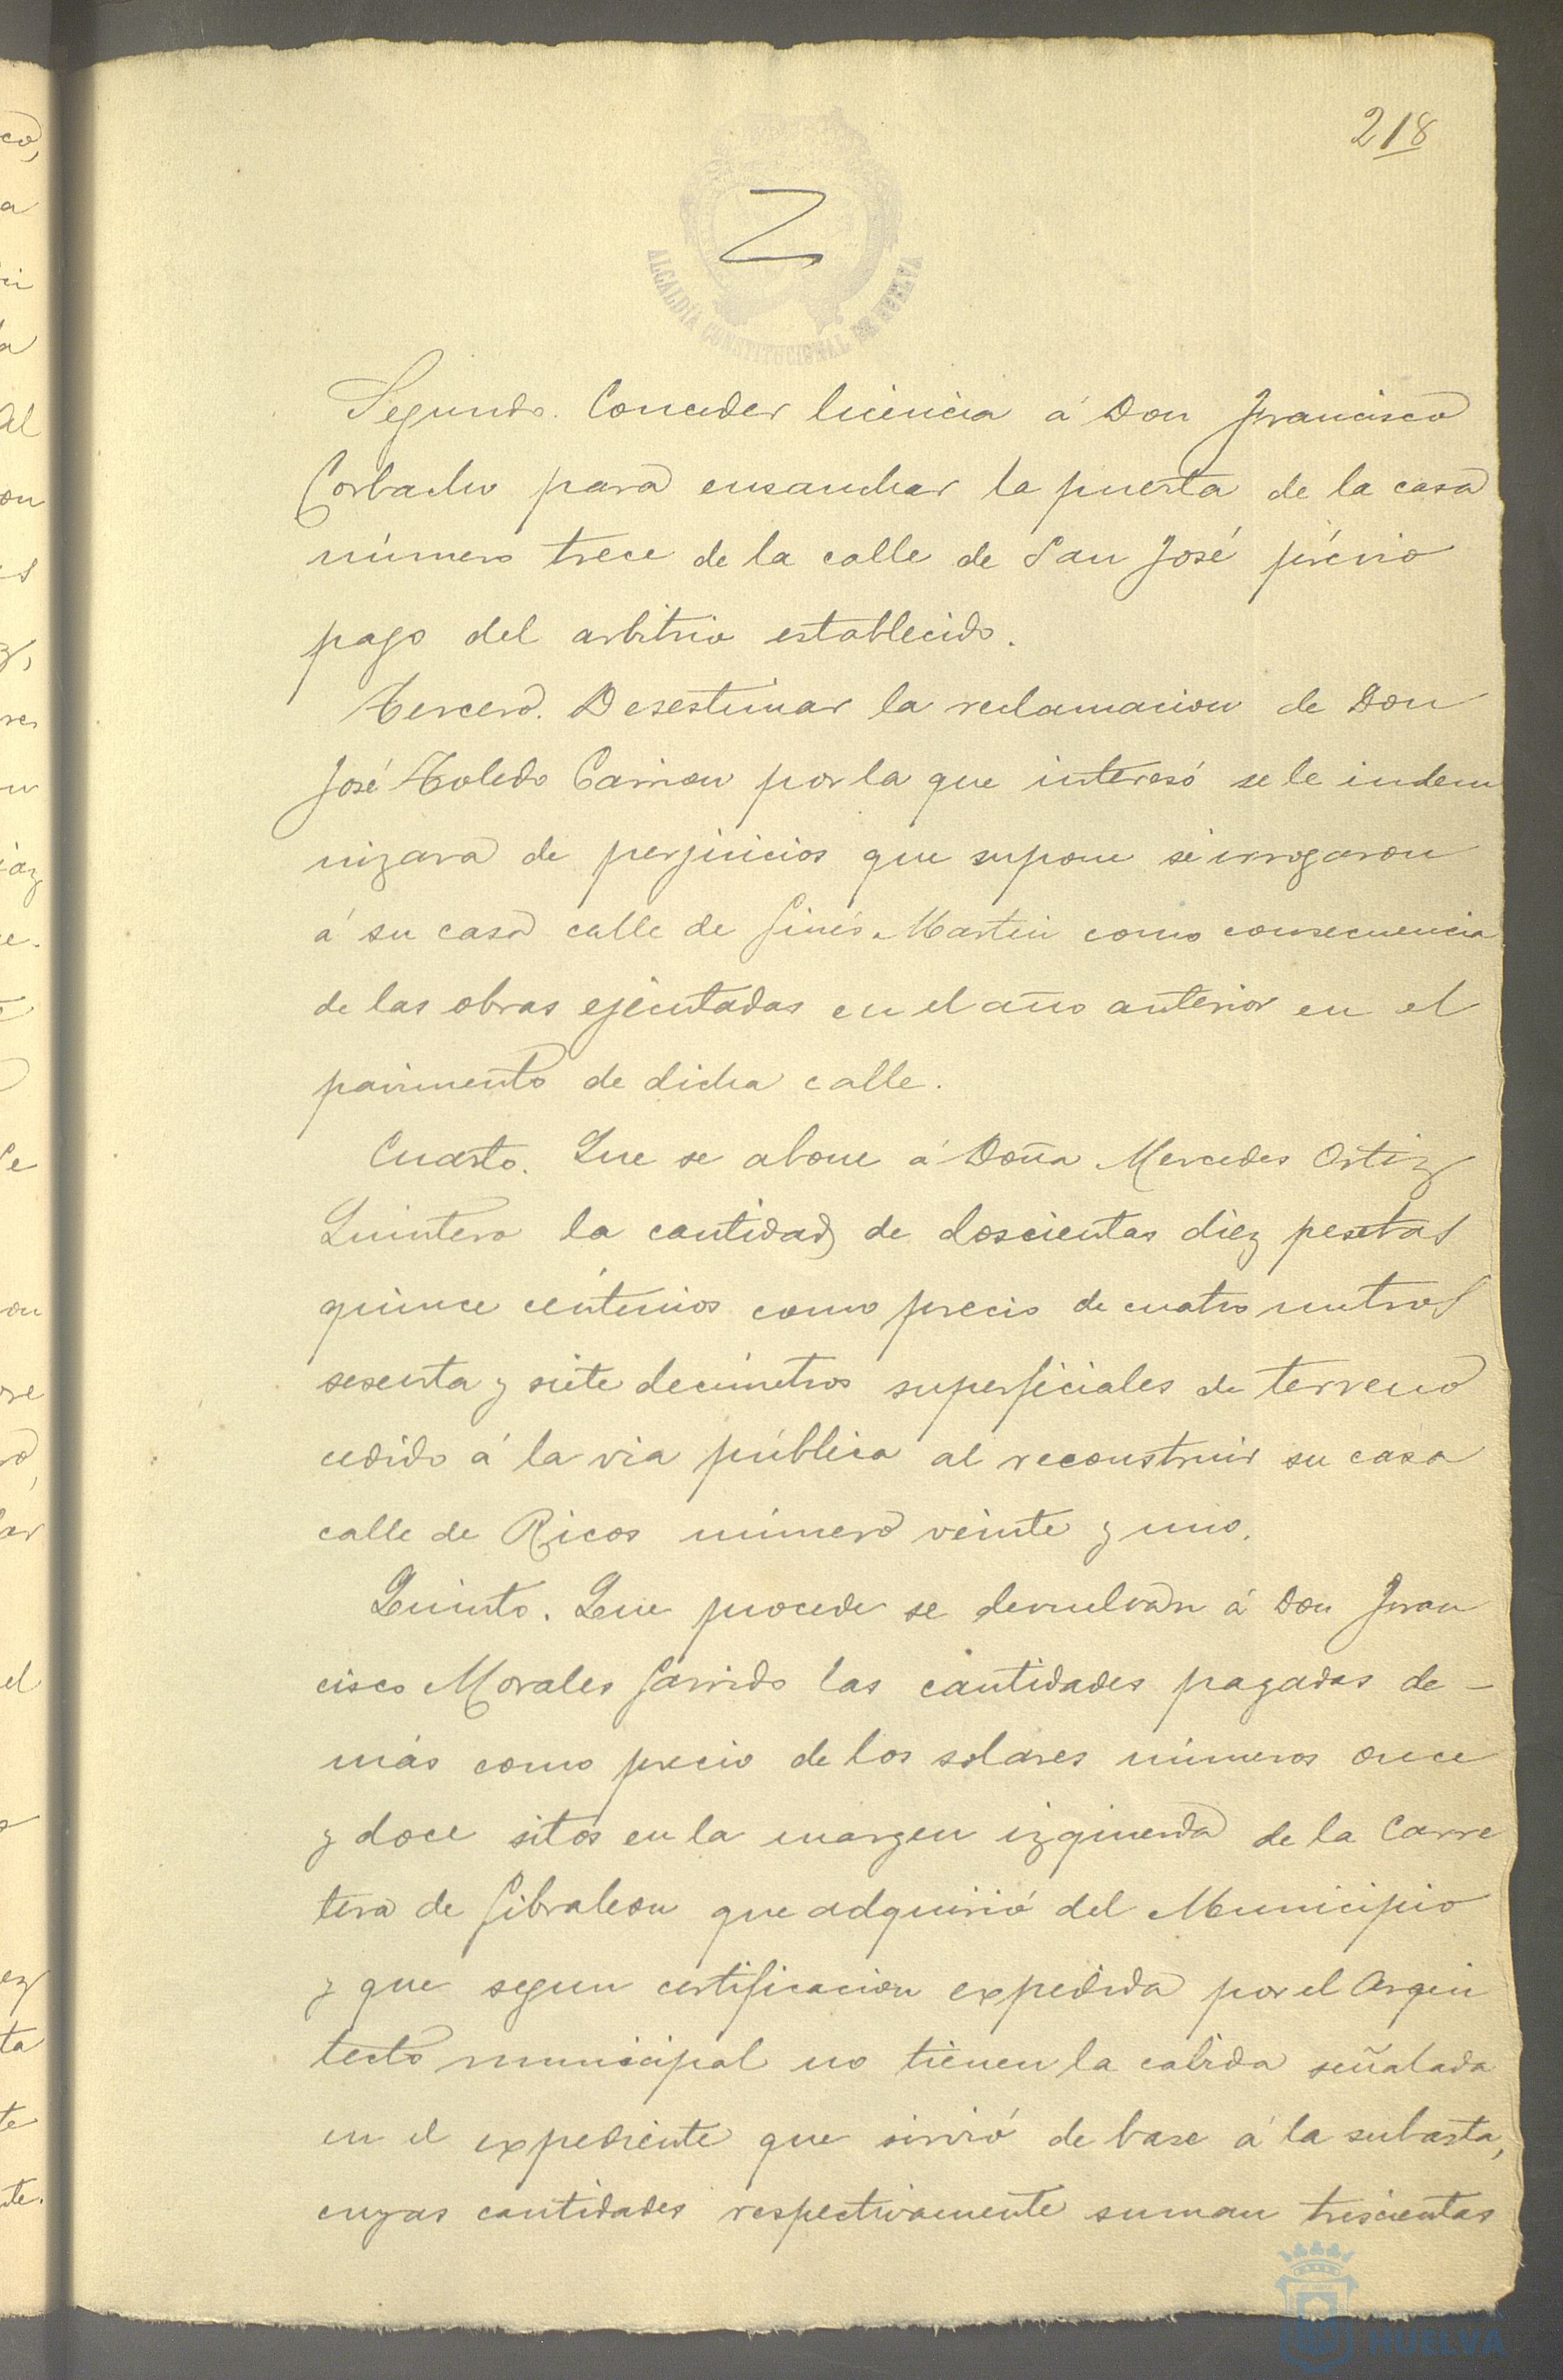 218
ALCALDÍA CONSTITUCIONAL DE HUELVA
Segundo. Conceder licencia á Don Francisco
Corbacho para ensanchar la puerta de la casa
número trece de la calle de San José prévio
pago del arbitrio establecido.
Tercero. Desestimar la reclamacion de Don
José Toledo Carrion por la que interesó se le indem
nizara de perjuicios que supone se irrogaron
á su casa calle de Ginés Martin como consecuencia
de las obras ejecutadas en el año anterior en el
pavimento de dicha calle.
Cuarto. Que se abone á Doña Mercedes Ortiz
Quintero la cantidad de doscientas diez pesetas
quince céntimos como precio de cuatro metros
sesenta y siete decimetros superficiales de terreno
cedido á la via pública al reconstruir su casa
calle de Ricos número veinte y uno.
Quinto. Que procede se devuelvan á Don Fran
cisco Morales Garrido las cantidades pagadas de-
más como precio de los solares números once
y doce sitos en la margen izquierda de la Carre
tera de Gibraleon que adquirió del Municipio
y que segun certificacion expedida por el Arqui
tecto municipal no tienen la cabida señalada
en el expediente que sirvió de base á la subasta,
cuyas cantidades respectivamente suman trescientas
HUELVA